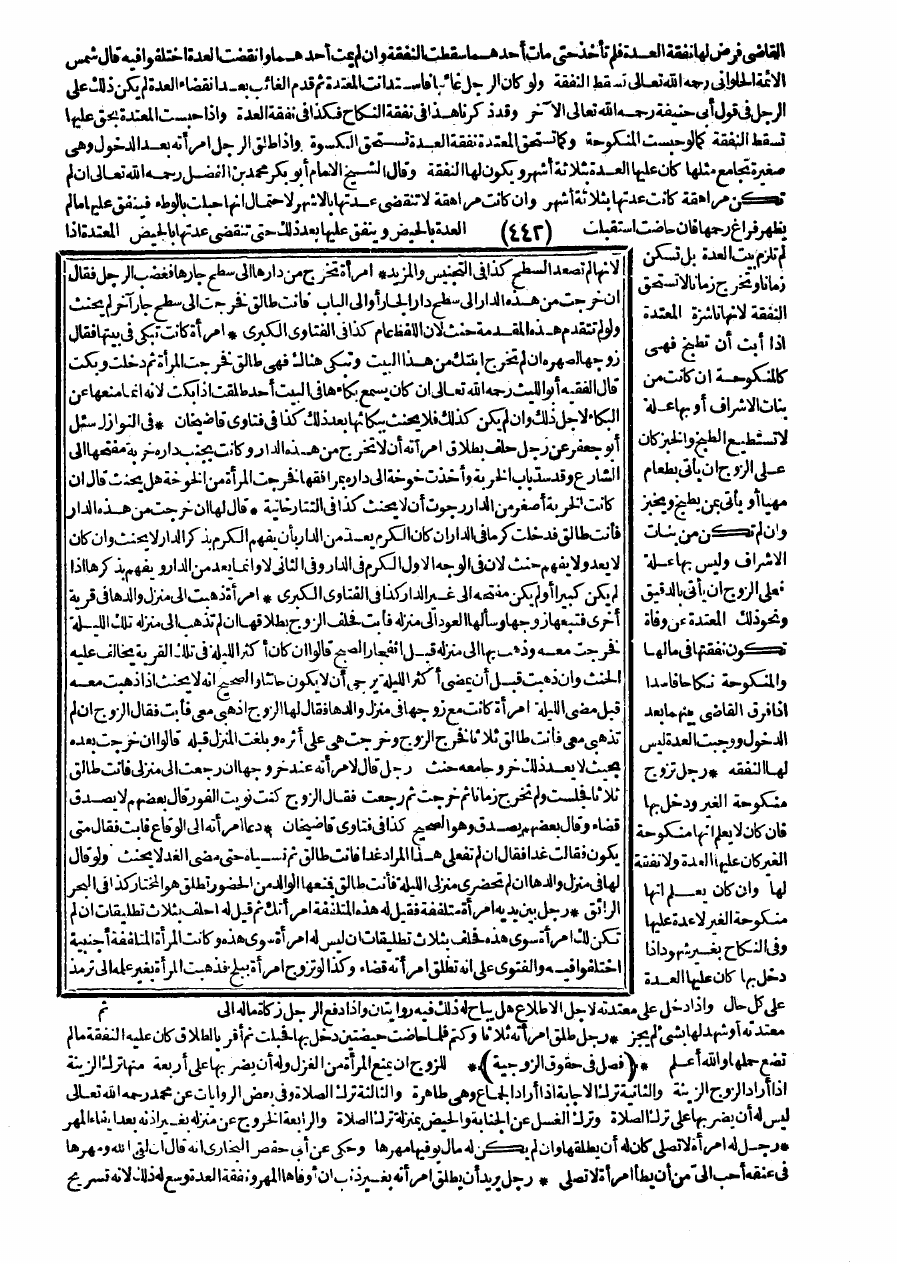 القاضى فرض لها نفقة العدة فلم تأخذ حتى مات أحدهما سقطت النفقة وان لم يمت أحدهما وانقضت العدة اختلفوا فيه قال شمس
الائمة الحلوانى رحمه الله تعالى تسقط النفقة ولو كان الرجل غائبا فاستدانت المعتدة ثم قدم الغائب بعد انقضاء العدة لم يكن ذلك على
الرجل فى قول أبى حنيفة رحمه الله تعالى الآخر وقد ذكرنا هذا فى نفقة النكاح فكذا فى نفقة العدة واذا حبست المعتدة بحق عليها
تسقط النفقة كما لو حبست المنكوحة وكما تستحق المعتدة نفقة العدة تستحق الكسوة واذا طلق الرجل امرأته بعد الدخول وهى
صغيرة تجامع مثلها كان عليها العدة ثلاثة أشهر ويكون لها النفقة وقال الشيخ الامام أبو بكر محمد بن الفضل رحمه الله تعالى ان لم
تكن مراهقة كانت عدتها بثلاثة أشهر وان كانت مراهقة لا تنقضى عدتها بالاشهر لاحتمال انها حبلت بالوطء فينفق عليها مالم
يظهر فراغ رحمها فان حاضت استقبلت (٤٤٢) العدة بالحيض وينفق عليها بعد ذلك حتى تنقضى عدتها بالحيض المعتدة اذا
لم تلزم بيت العدة بل تسكن
زمانا وتخرج زمانا لا تستحق
النفقة لانها ناشزة المعتدة
اذا أبت أن تطبخ فهى
كالمنكوحة ان كانت من
بنات الاشراف أو بها علة
لا تستطيع الطبخ والخبز كان
على الزوج ان يأتى بطعام
مهيا أو يأتى بمن يطبخ ويخبز
وان لم تكن من بنات
الاشراف وليس بها علة
فعلى الزوج ان يأتى بالدقيق
ونحو ذلك المعتدة عن وفاة
تكون نفقتها فى مالها
والمنكوحة نكاحا فاسدا
اذا فرق القاضى بينهما بعد
الدخول ووجبت العدة ليس
لها النفقة * رجل تزوج
منكوحة الغير ودخل بها
فان كان لا يعلم انها منكوحة
الغير كان عليها العدة ولا نفقة
لها وان كان يعلم انها
منكوحة الغير لا عدة عليها
وفى النكاح بغير شهود اذا
دخل بها كان عليها العدة
على كل حال واذا دخل على معتدته لاجل الاطلاع هل يباح له ذلك فيه روايتان واذا دفع الرجل زكاة ماله الى
معتدته أو شهد لها بشئ لم يجز * رجل طلق امرأته ثلاثا وكتم فلما حاضت حيضتين دخل بها فحبلت ثم أقر بالطلاق كان عليه النفقة مالم
تضع حملها والله أعلم * (فصل فى حقوق الزوجية) * للزوج ان يمنع المرأة من الغزل وله أن يضربها على أربعة منها ترك الزينة
اذا أراد الزوج الزينة والثانية ترك الاجابة اذا أراد الجماع وهى طاهرة والثالثة ترك الصلاة وفى بعض الروايات عن محمد رحمه الله تعالى
ليس له أن يضربها على ترك الصلاة وترك الغسل عن الجنابة والحيض بمنزلة ترك الصلاة والرابعة الخروج عن منزله بغير اذنه بعد ايفاء المهر
* رجل له امرأة لا تصلى كان له أن يطلقها وان لم يكن له مال يوفيها مهرها وحكى عن أبى حفص البخارى انه قال ان لقى الله ومهرها
فى عنقه أحب الىّ من أن يطأ امرأة لا تصلى * رجل يريد أن يطلق امرأته بغير ذنب ان أوفاها المهر ونفقة العدة توسع له ذلك لانه تسريح
لانها لم تصعد السطح كذا فى التجنيس والمزيد * امرأة تخرج من دارها الى سطح جارها فغضب الرجل فقال
ان خرجت من هذه الدار الى سطح دار الجار أو الى الباب فانت طالق فخرجت الى سطح جار آخر لم يحنث
ولو لم تتقدم هذه المقدمة حنث لان اللفظ عام كذا فى الفتاوى الكبرى * امرأة كانت تبكى فى بيتها فقال
زوجها لصهره ان لم تخرج ابنتك من هذا البيت وتبكى هنالك فهى طالق فخرجت المرأة ثم دخلت وبكت
قال الفقيه أبو الليث رحمه الله تعالى ان كان يسمع بكاءها فى البيت أحد طلقت اذا بكت لانه انما منعها عن
البكاء لاجل ذلك وان لم يكن كذلك فلا يحنث ببكائها بعد ذلك كذا فى فتاوى قاضيخان * فى النوازل سئل
أبو جعفر عن رجل حلف بطلاق امرأته أن لا تخرج من هذه الدار وكانت بجنب داره خربة مفتحها الى
الشارع وقد سد باب الخربة وأخذت خوخة الى داره بمرافقها فخرجت المرأة من الخوخة هل يحنث قال ان
كانت الخربة أصغر من الدار رجوت أن لا يحنث كذا فى التتارخانية * قال لها ان خرجت من هذه الدار
فأنت طالق فدخلت كرما فى الدار ان كان الكرم يعد من الدار بأن يفهم الكرم بذكر الدار لا يحنث وان كان
لا يعد ولا يفهم حنث لان فى الوجه الاول الكرم فى الدار وفى الثانى لا وانما يعد من الدار ويفهم بذكرها اذا
لم يكن كبيرا أو لم يكن مفتحه الى غير الدار كذا فى الفتاوى الكبرى * امرأة ذهبت الى منزل والدها فى قرية
أخرى فتبعها زوجها وسألها العود الى منزله فأبت فحلف الزوج بطلاقها ان لم تذهب الى منزله تلك الليلة
فخرجت معه وذهب بها الى منزله قبل انفجار الصبح قالوا ان كان أكثر الليلة فى تلك القرية يخاف عليه
الحنث وان ذهبت قبل أن يمضى أكثر الليلة يرجى أن لا يكون حانثا والصحيح انه لا يحنث اذا ذهبت معه
قبل مضى الليلة امرأة كانت مع زوجها فى منزل والدها فقال لها الزوج اذهبى معى فأبت فقال الزوج ان لم
تذهبى معى فأنت طالق ثلاثا فخرج الزوج وخرجت هى على أثره وبلغت المنزل قبله قالوا ان خرجت بعده
بحيث لا يعد ذلك خروجا معه حنث رجل قال لامرأته عند خروجها ان رجعت الى منزلى فانت طالق
ثلاثا فجلست ولم تخرج زمانا ثم خرجت ثم رجعت فقال الزوج كنت نويت الفور قال بعضهم لا يصدق
قضاء وقال بعضهم يصدق وهو الصحيح كذا فى فتاوى قاضيخان * دعا امرأته الى الوقاع فابت فقال متى
يكون فقالت غدا فقال ان لم تفعلى هذا المراد غدا فانت طالق ثم نسياه حتى مضى الغد لا يحنث ولو قال
لها فى منزل والدها ان لم تحضرى منزلى الليلة فأنت طالق فمنعها الوالد من الحضور تطلق هو المختار كذا فى البحر
الرائق * رجل بين يديه امرأة متلففة فقيل له هذه المتلففة امرأتك ثم قيل له احلف بثلاث تطليقات ان لم
تكن لك امرأة سوى هذه فحلف بثلاث تطليقات ان ليس له امرأة سوى هذه وكانت المرأة المتلففة أجنبية
اختلفوا فيه والفتوى على انه تطلق امرأته قضاء وكذا لو تزوج امرأة ببلخ فذهبت المرأة بغير علمه الى ترمذ
ثم